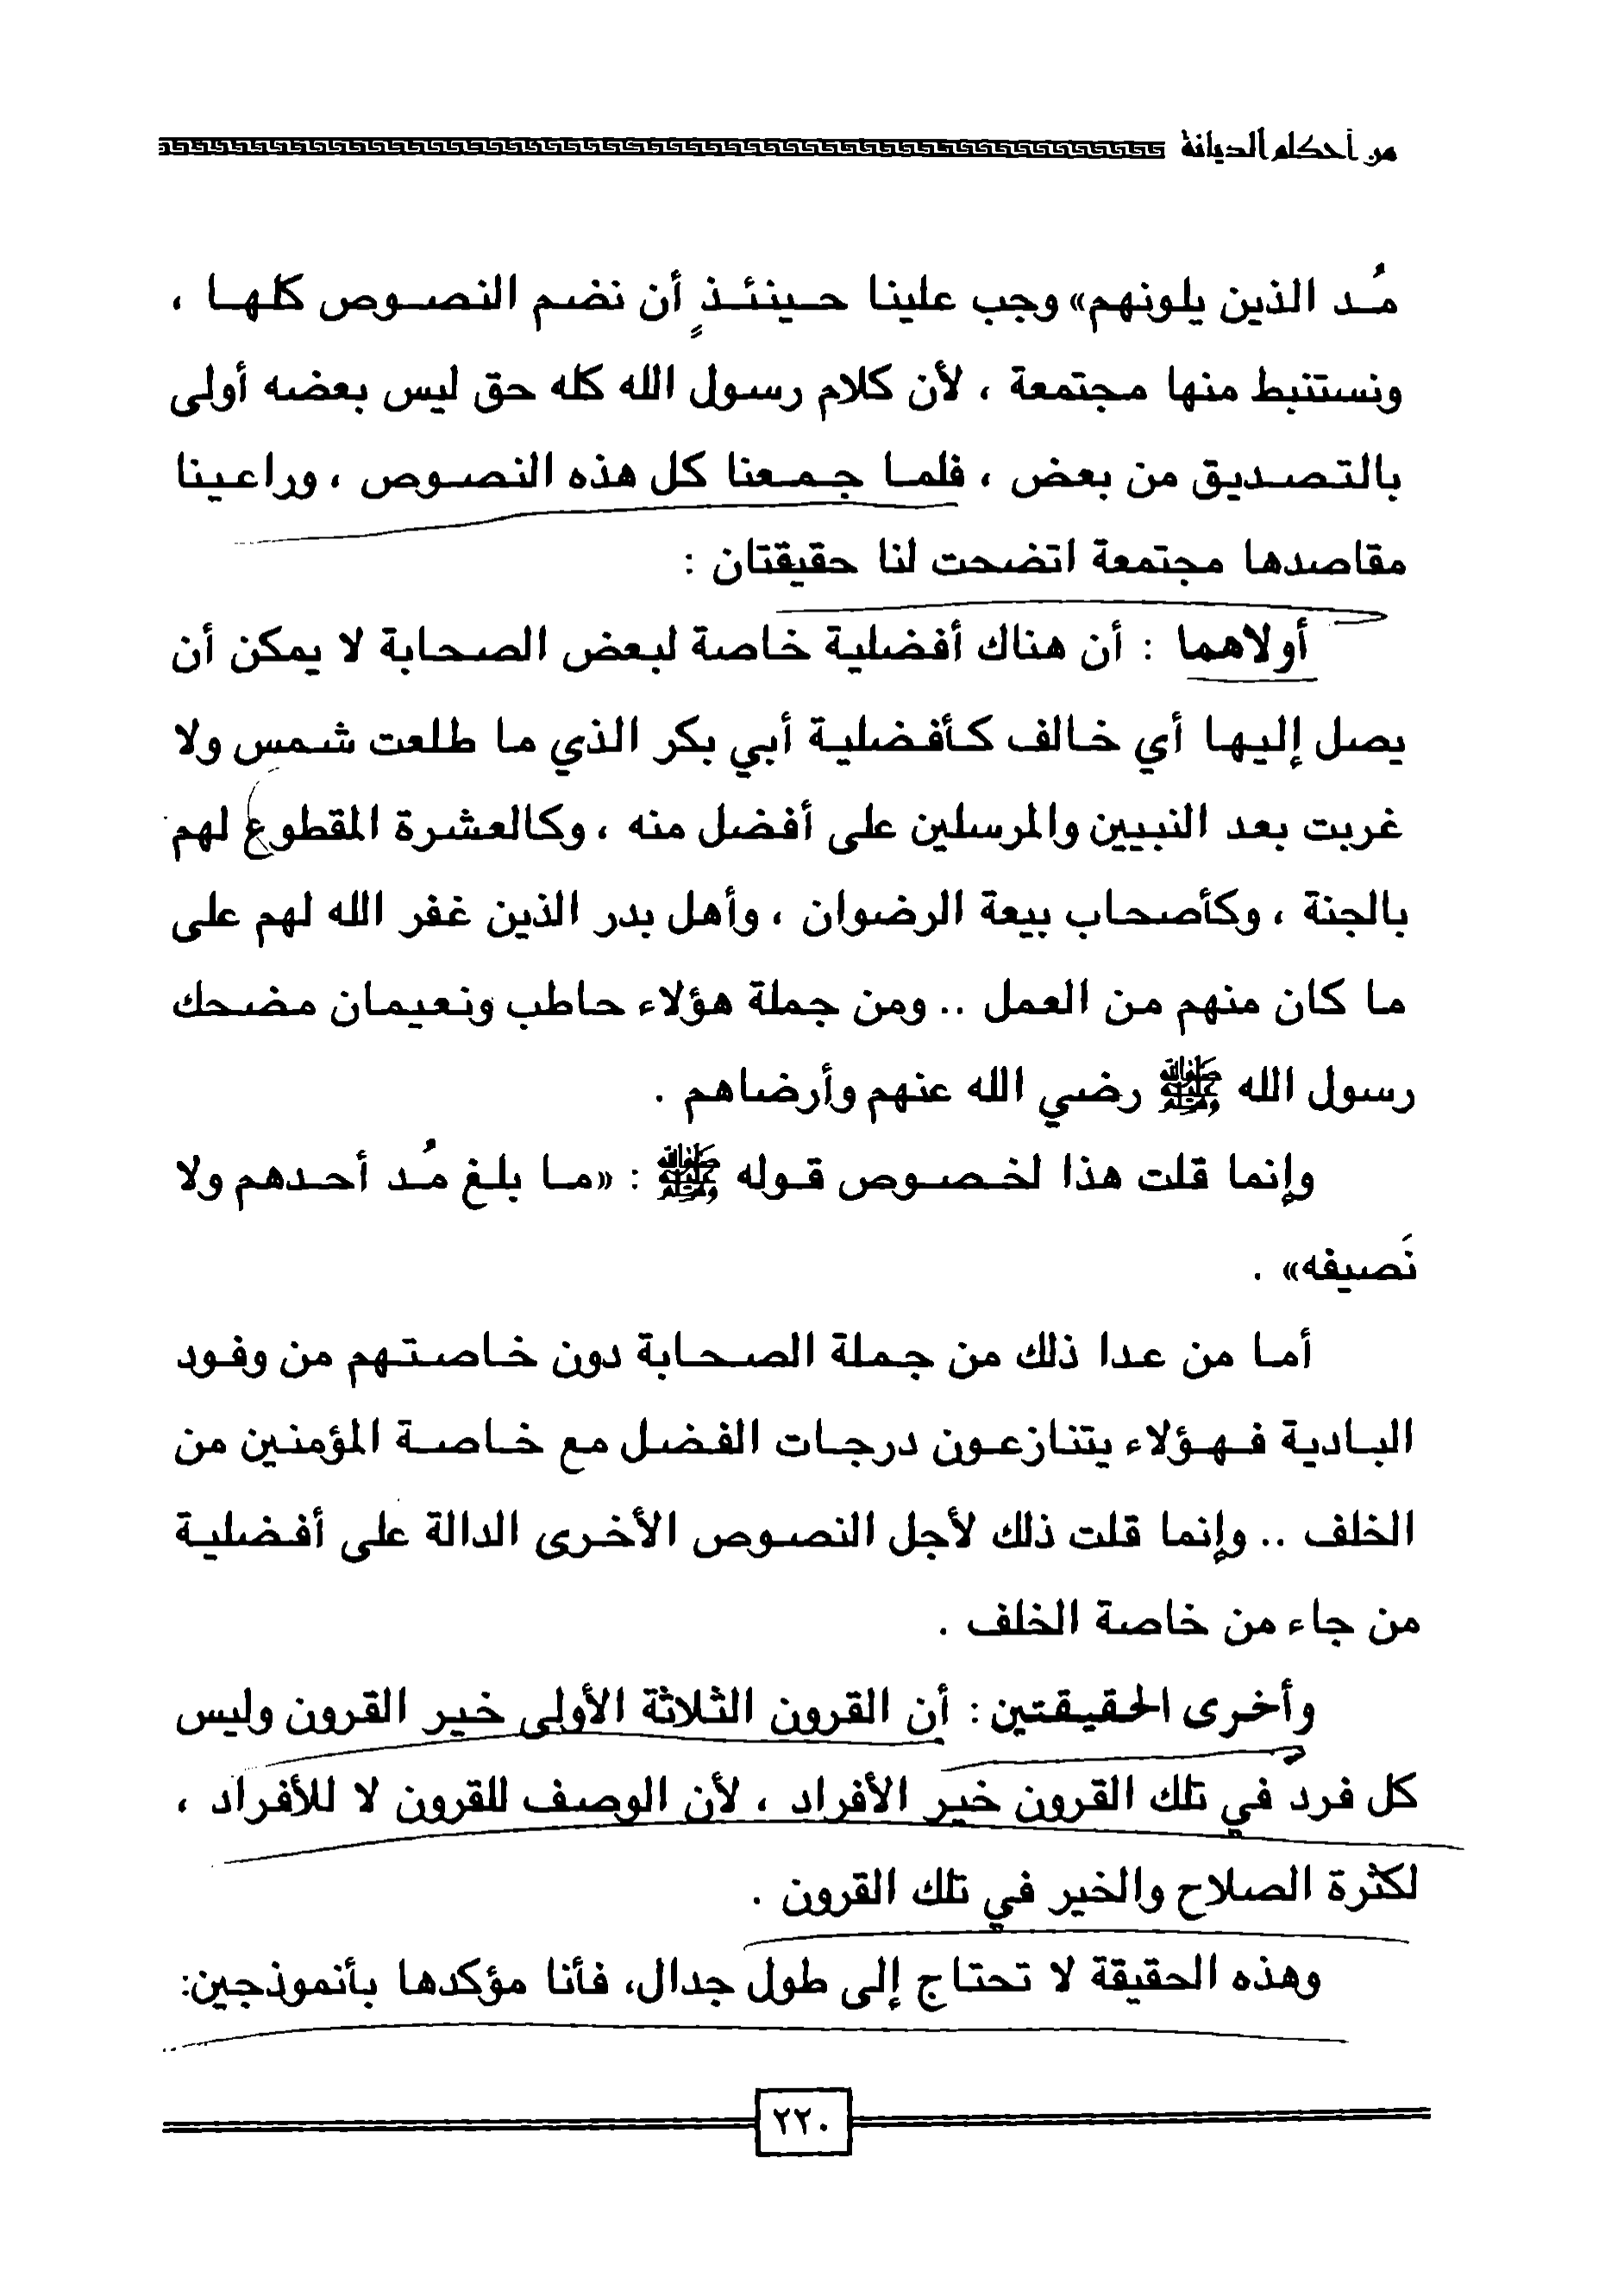 من أحكام الديانة
مُد الذين يلونهم» وجب علينا حينئذٍ أن نضم النصوص كلها ،
ونستنبط منها مجتمعة ، لأن كلام رسول الله كله حق ليس بعضه أولى
بالتصديق من بعض ، فلما جمعنا كل هذه النصوص ، وراعينا
مقاصدها مجتمعة اتضحت لنا حقيقتان :
أولاهما : أن هناك أفضلية خاصة لبعض الصحابة لا يمكن أن
يصل إليها أي خالف كأفضلية أبي بكر الذي ما طلعت شمس ولا
غربت بعد النبيين والمرسلين على أفضل منه ، وكالعشرة المقطوع لهم
بالجنة ، وكأصحاب بيعة الرضوان ، وأهل بدر الذين غفر الله لهم على
ما كان منهم من العمل .. ومن جملة هؤلاء حاطب ونعيمان مضحك
رسول الله ﷺ رضي الله عنهم وأرضاهم .
وإنما قلت هذا لخصوص قوله ﷺ : «ما بلغ مُد أحدهم ولا
نَصيفه» .
أما من عدا ذلك من جملة الصحابة دون خاصتهم من وفود
البادية فهؤلاء يتنازعون درجات الفضل مع خاصة المؤمنين من
الخلف .. وإنما قلت ذلك لأجل النصوص الأخرى الدالة على أفضلية
من جاء من خاصة الخلف .
وأخرى الحقيقتين : أن القرون الثلاثة الأولى خير القرون وليس
كل فرد في تلك القرون خير الأفراد ، لأن الوصف للقرون لا للأفراد ،
لكثرة الصلاح والخير في تلك القرون .
وهذه الحقيقة لا تحتاج إلى طول جدال، فأنا مؤكدها بأنموذجين:
٢٢٠